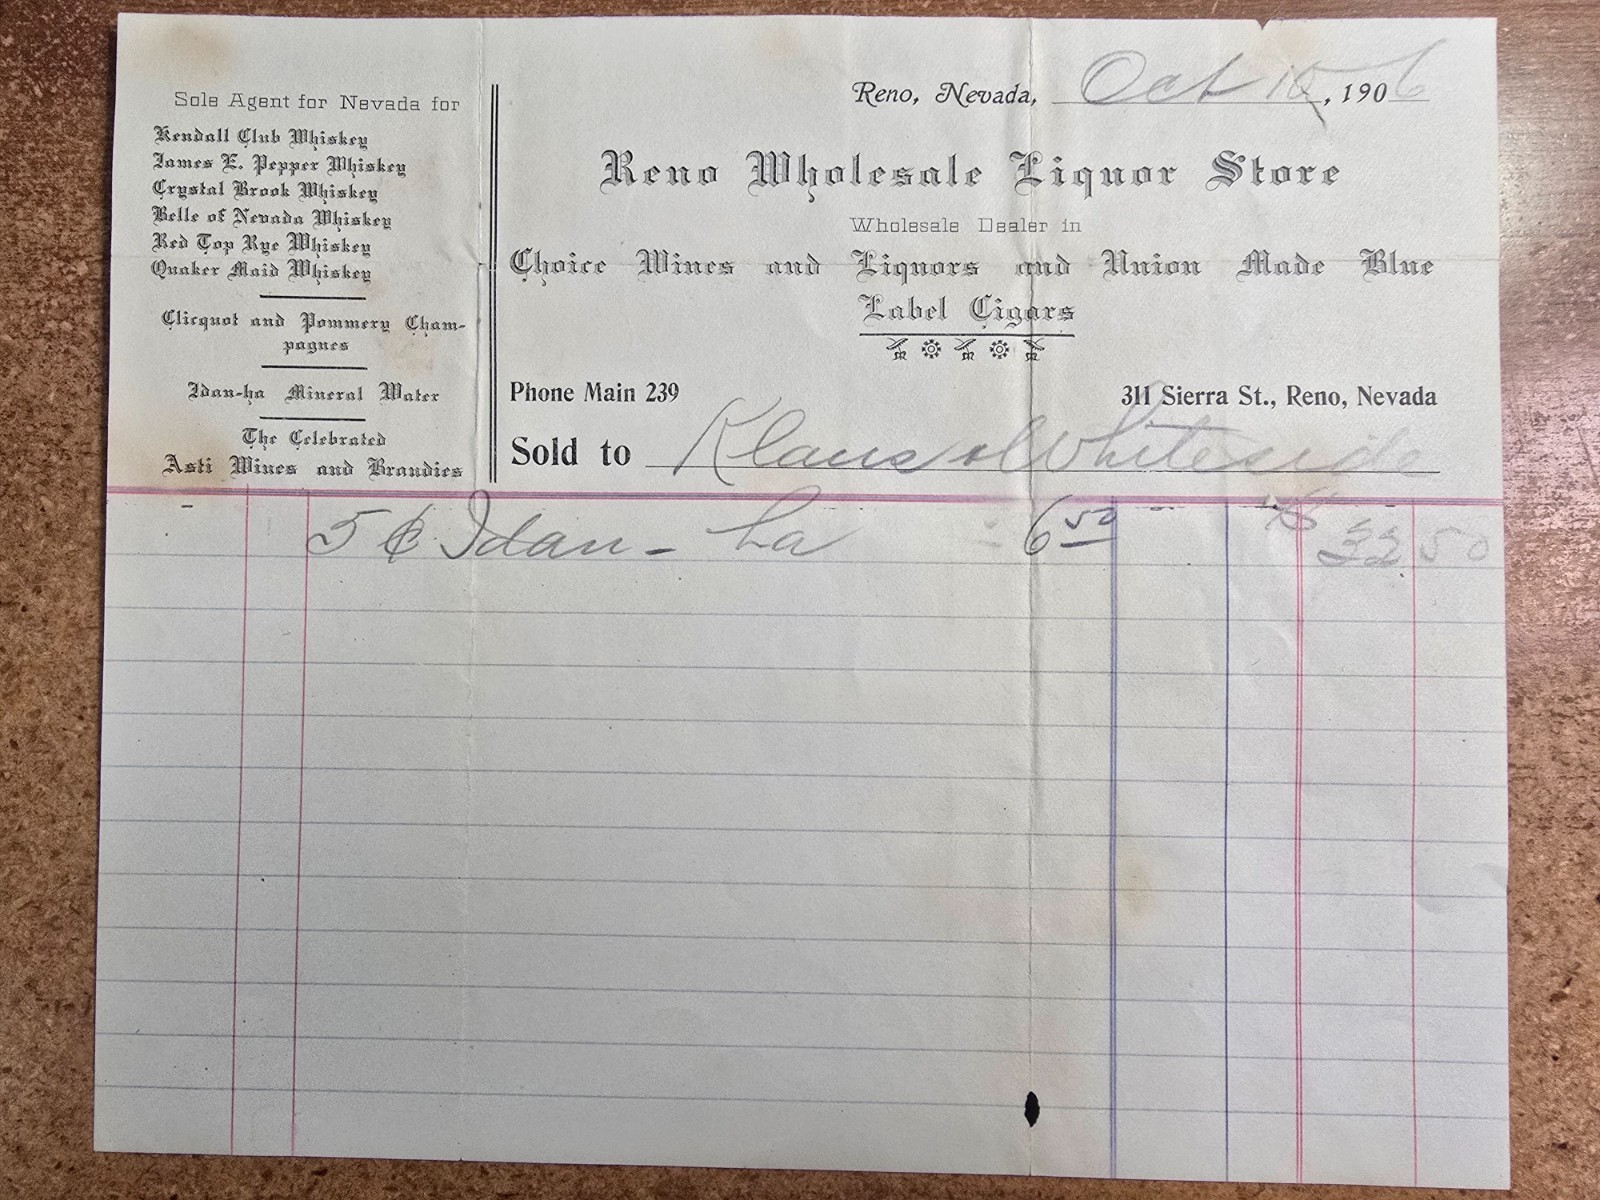 Sole Agent for Nevada for
Kendall Club Whiskey
James E. Pepper Whiskey
Crystal Brook Whiskey
Belle of Nevada Whiskey
Red Top Rye Whiskey
Quaker Maid Whiskey
Clicquot and Pommery Cham-
pagnes
Idan-ha Mineral Water
The Celebrated
Asti Wines and Brandies
Reno, Nevada, Oct , 1906
Reno Wholesale Liquor Store
Wholesale Dealer in
Choice Wines and Liquors and Union Made Blue
Label Cigars
Phone Main 239
311 Sierra St., Reno, Nevada
Sold to Klaus & Whiteside
5 Idan-ha 6 50 $ 32 50